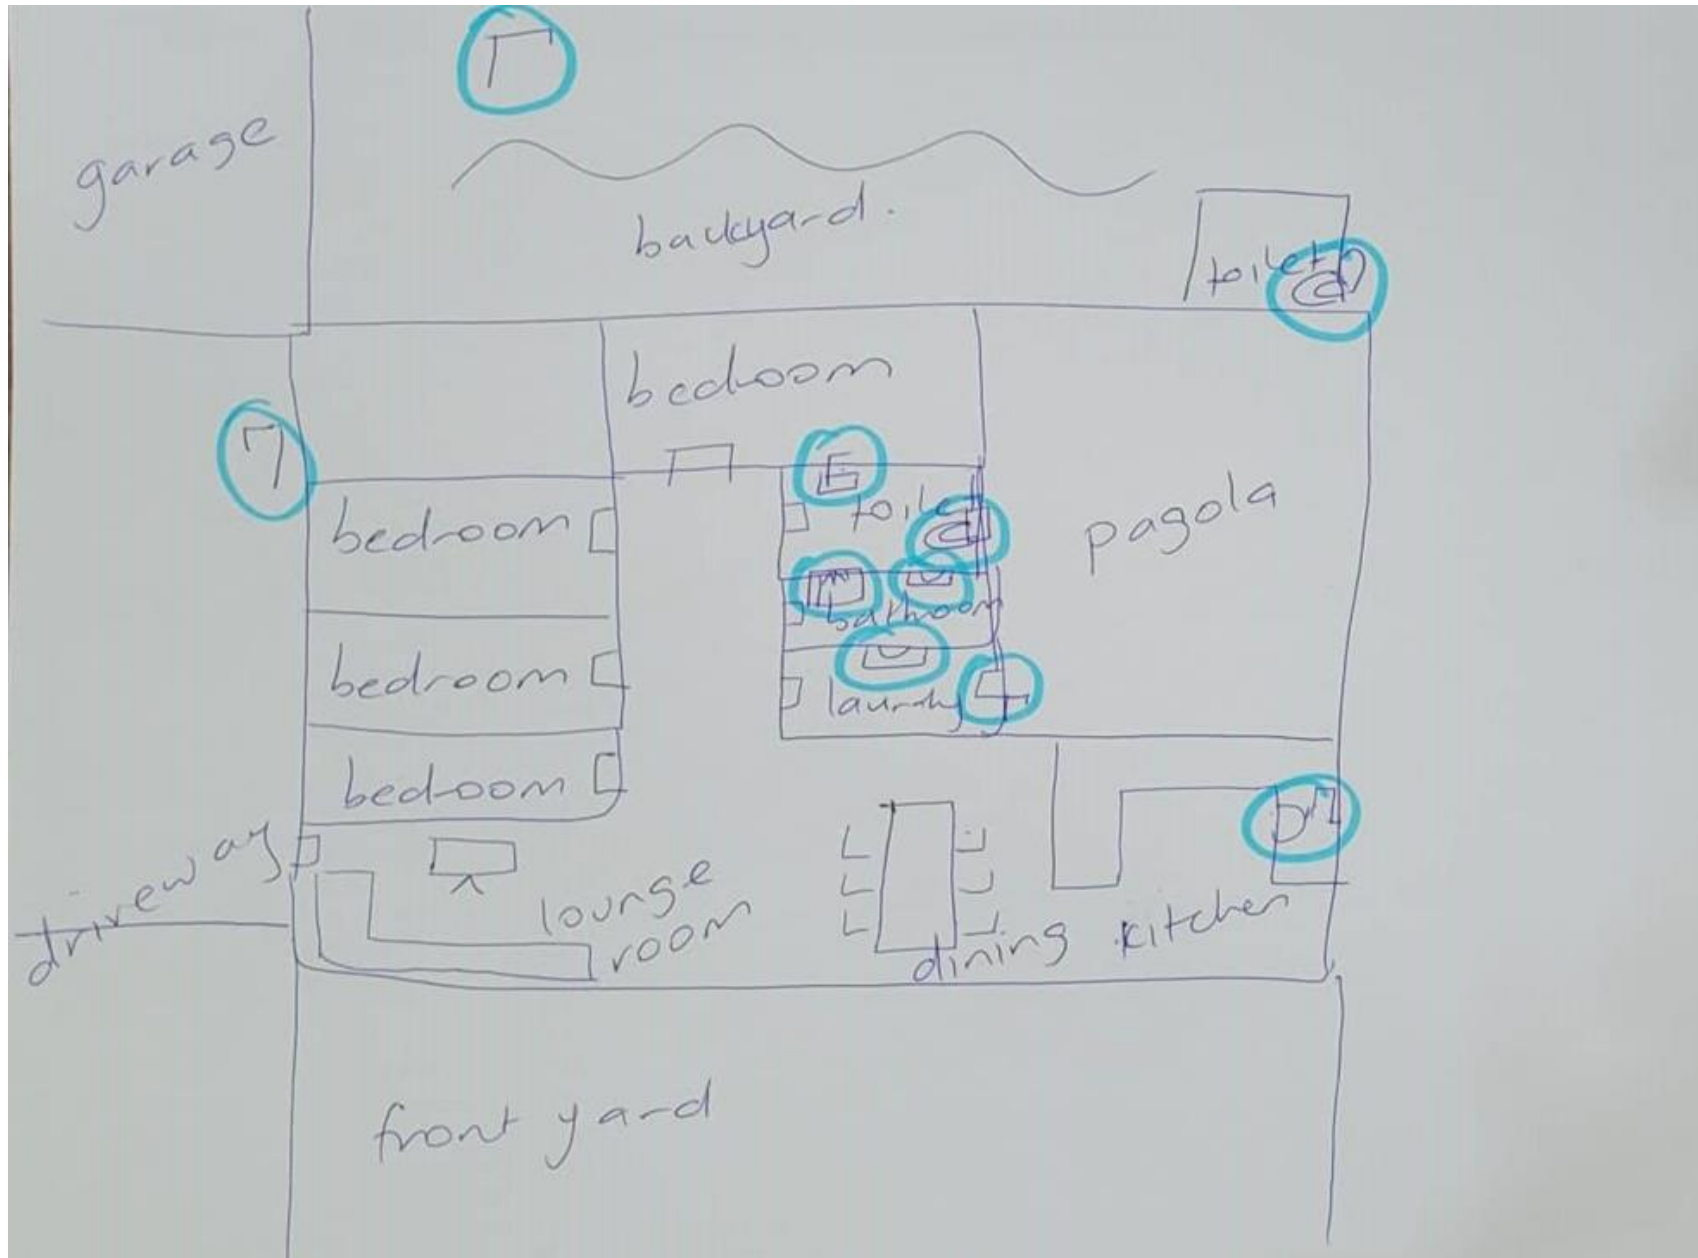 garage
backyard.
toilet
bedroom
bedroom
toilet
pagola
bathroom
bedroom
laundry
bedroom
driveway
lounge
room
dining
kitchen
front yard